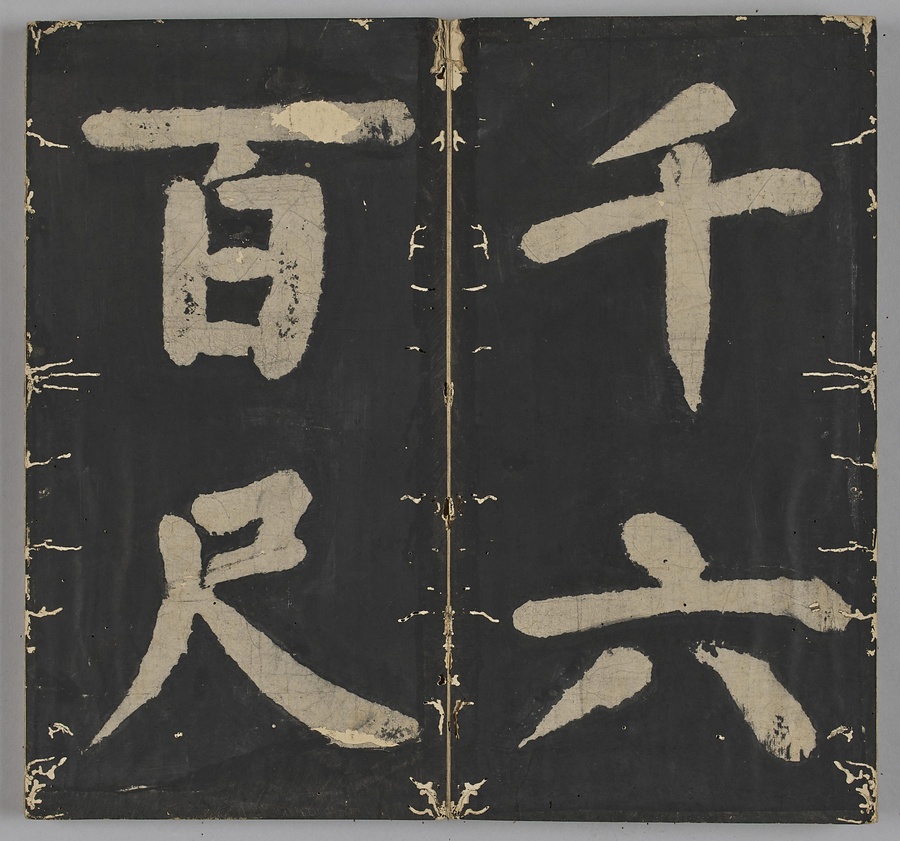 千六
百尺